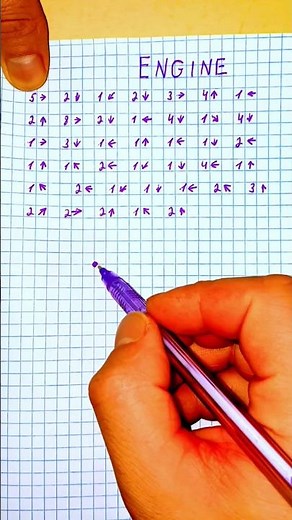 ENGINE
5→ 2↓ 1↙ 2↓ 3→ 4↑ 1←
2↑ 8→ 2↓ 1← 4↓ 1↘ 4↓
1→ 3↓ 1← 1↑ 1← 1↓ 2←
1↑ 1↖ 2← 1↓ 1↓ 4← 1↑
1↖ 2← 1↓ 1↓ 1← 2↖ 3↑
2↗ 2→ 2↑ 1↖ 2↑